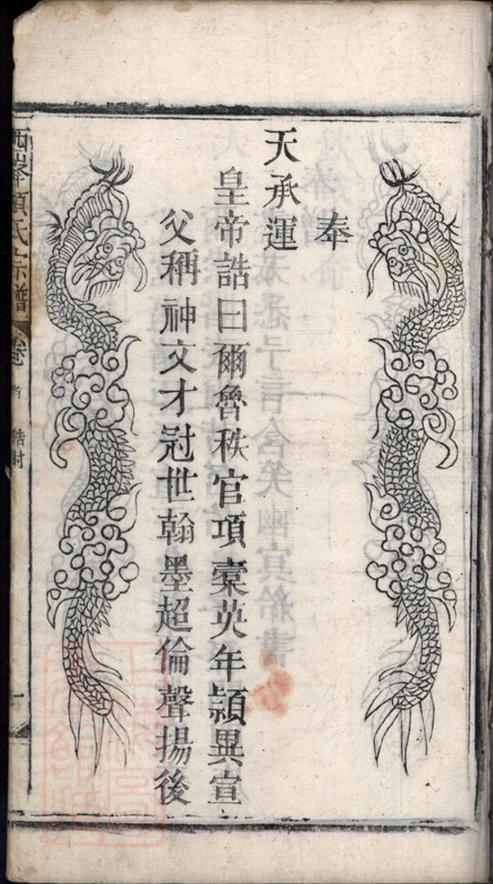 奉
天承運
皇帝誥曰爾魯秩官項橐英年穎異宣
父稱神文才冠世翰墨超倫聲揚後
西峯項氏宗譜
卷首 誥封
一